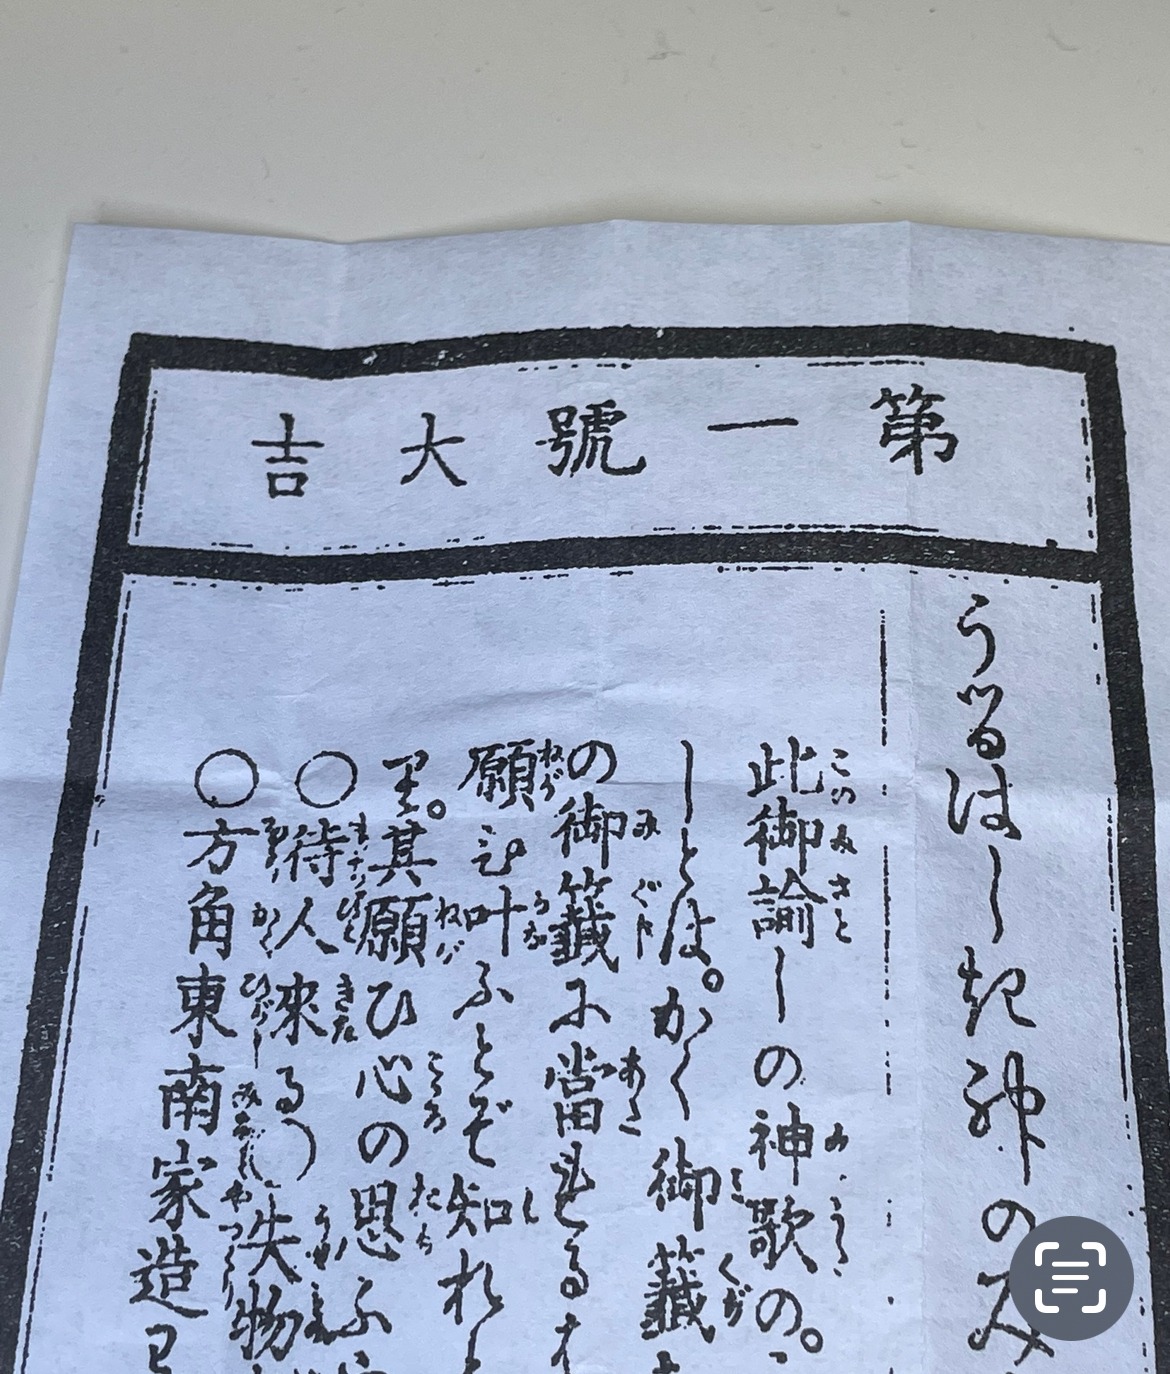 第一號大吉
うるはしき神の
此御諭しの神歌の。
しとは。かく御籤
の御籤に當
願ひ叶ふとぞ知れ
其願ひ心の思ふ
○待人來る○失物
○方角東南家造